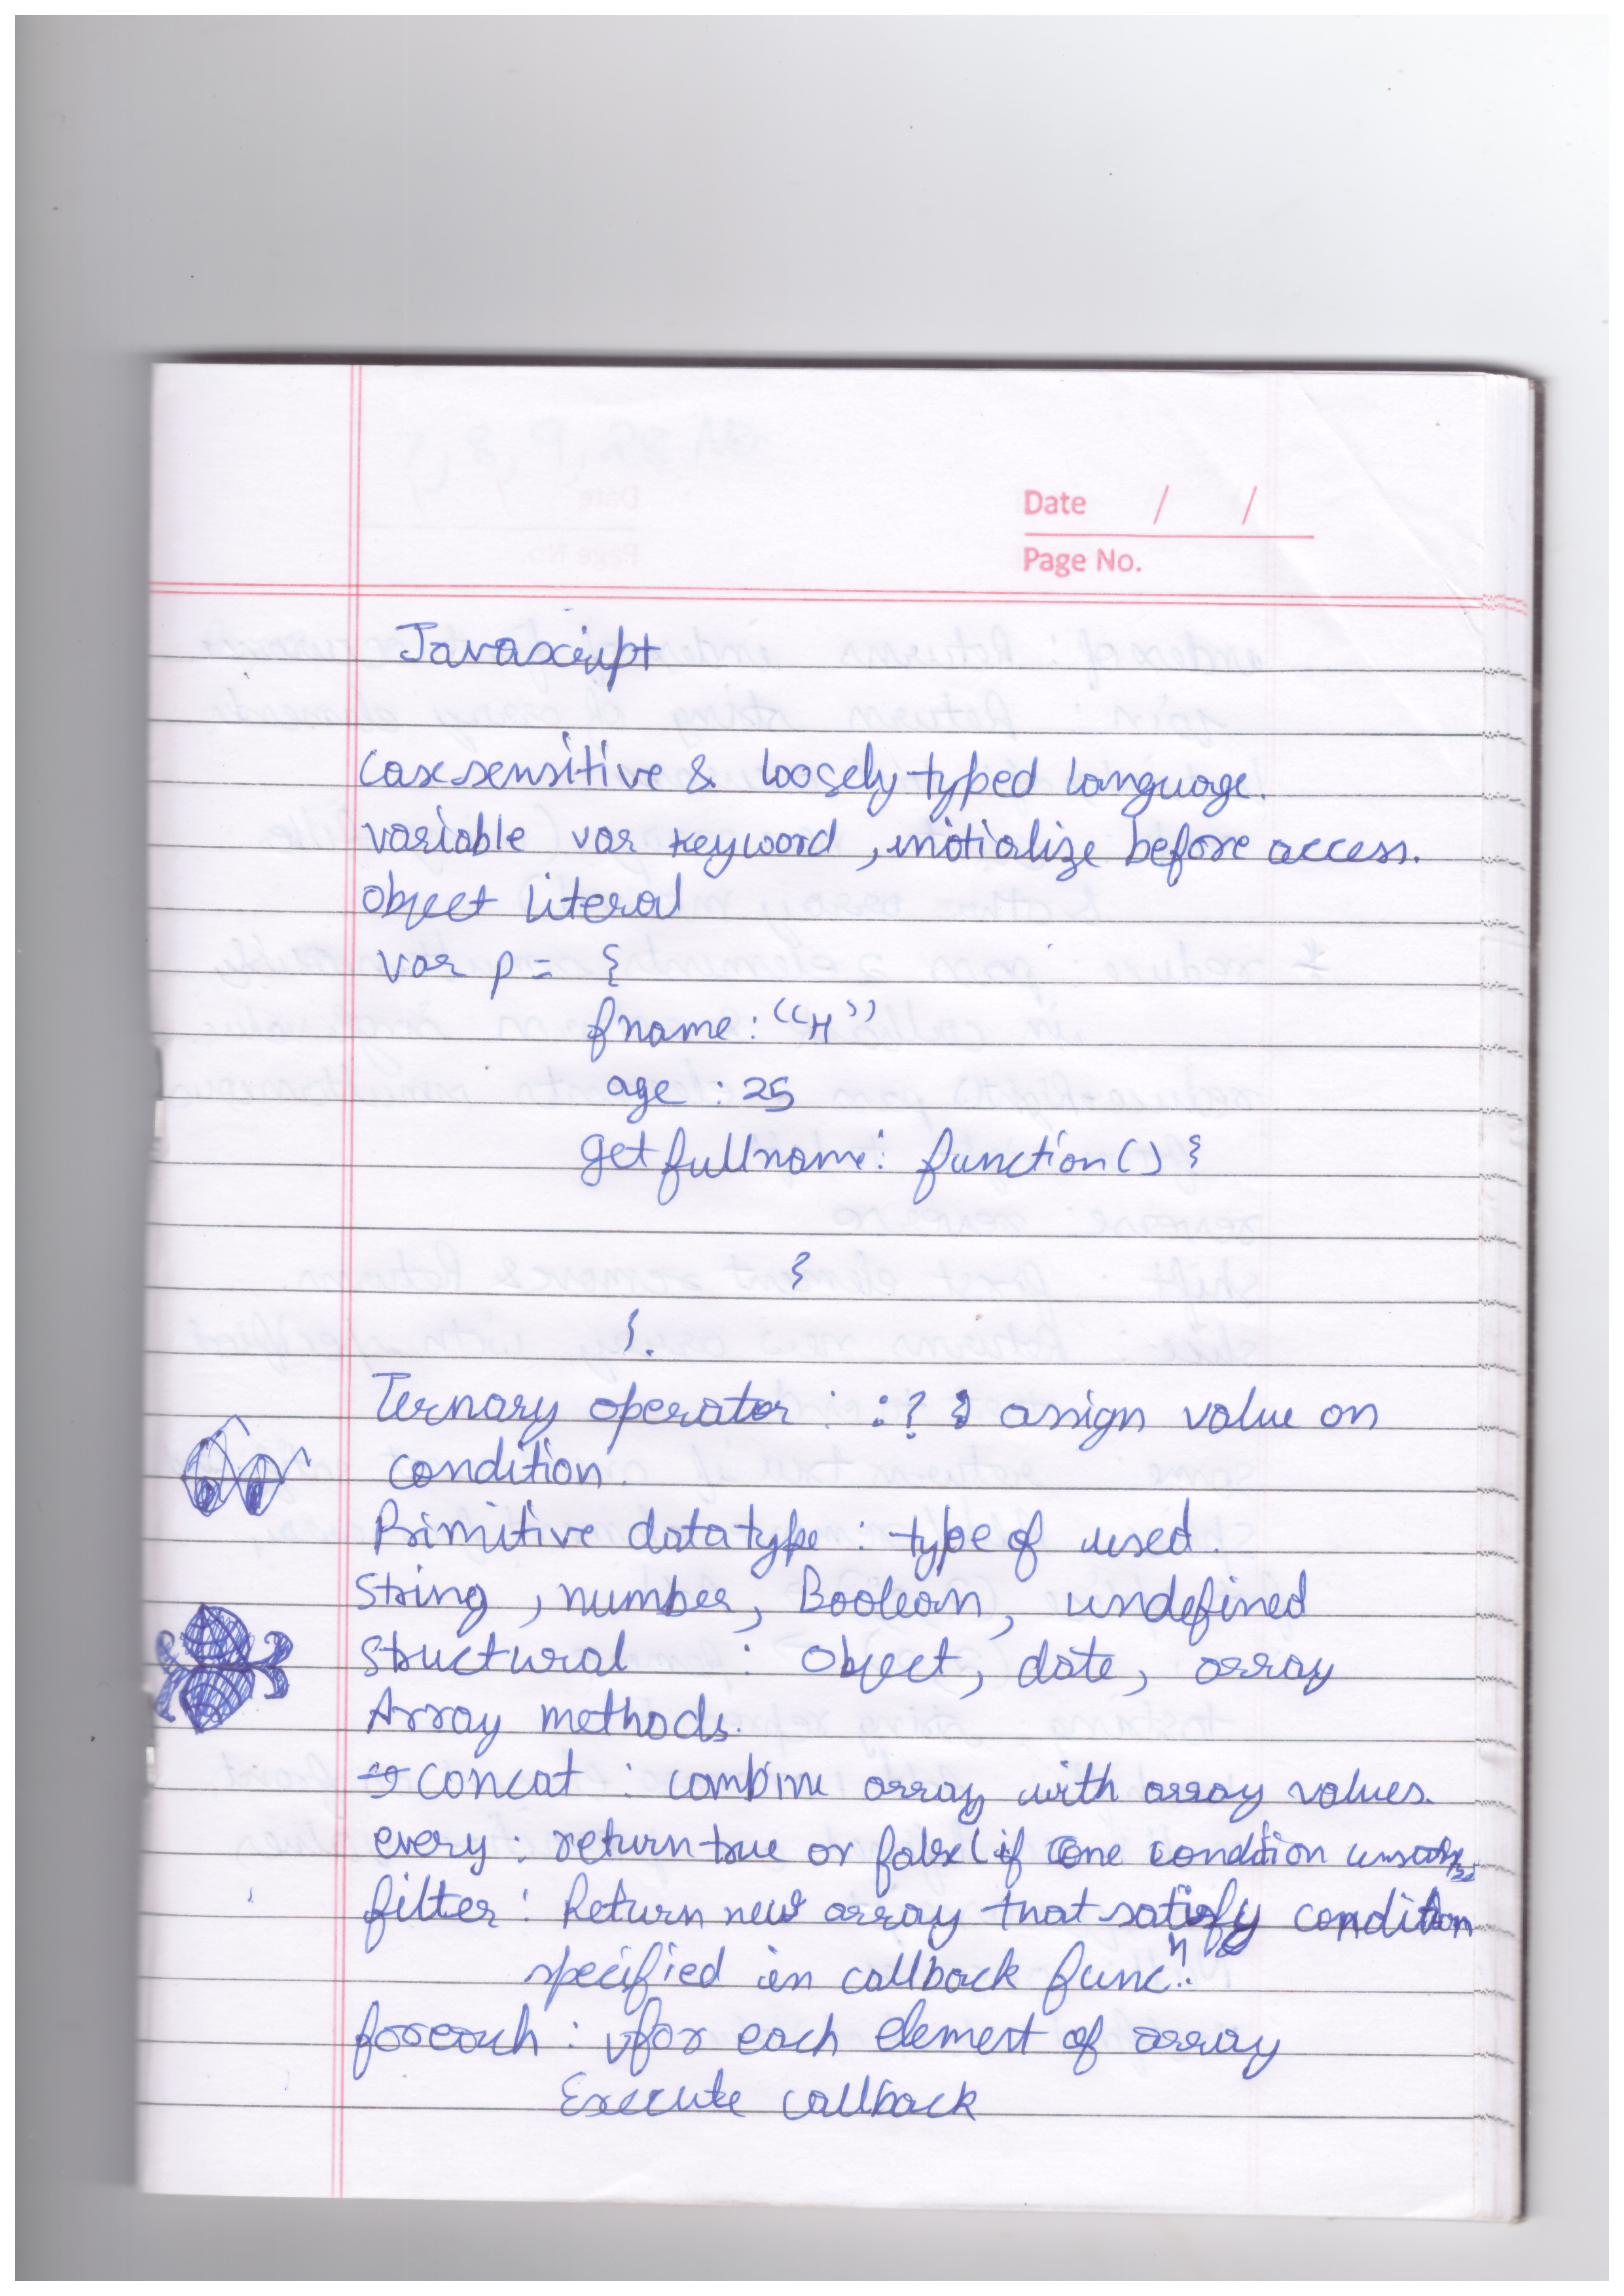 Date / /
Page No.
Javascript
Casesensitive & loosely typed language.
variable var keyword, initialize before access.
Object literal
var p = {
fname: "H"
age : 25
getfullname: function() {
}
}.
Ternary operator : :? assign value on
condition.
Primitive datatype : type of used.
String, number, Boolean, undefined
Structural : Object, date, array
Array methods.
→ concat : combine array with array values.
every : return true or false (if one condition
filter : Return new array that satisfy condition
specified in callback funcⁿ.
foreach : for each element of array
Execute callback